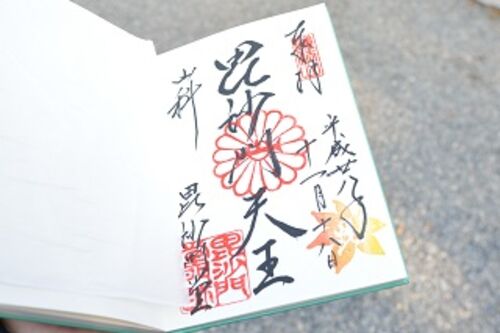 奉拝
平成廿八年
十一月十八日
毘沙門天王
山科
毘沙門堂
毘沙門